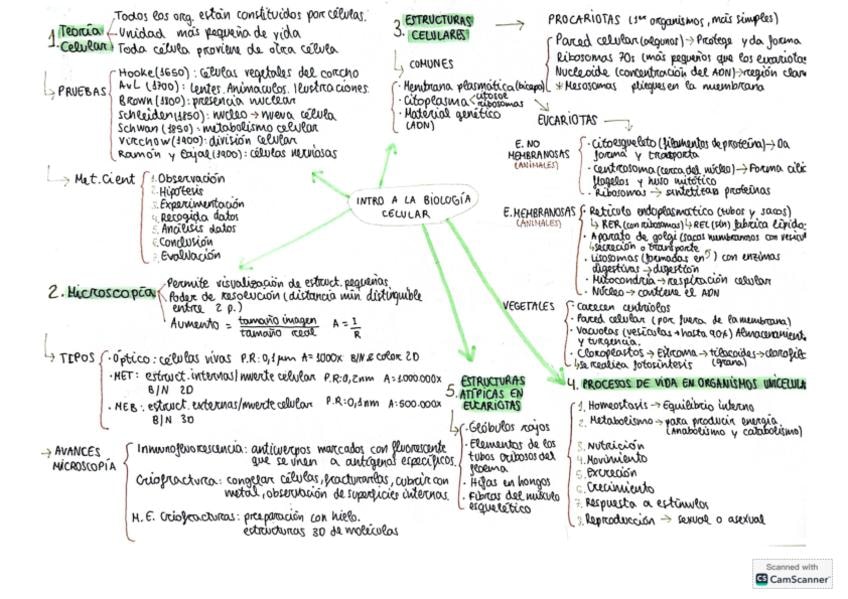 1. Teoría Celular
Todos los org. están constituidos por células.
Unidad más pequeña de vida
Toda célula proviene de otra célula
PRUEBAS
Hooke (1650): células vegetales del corcho
AvL (1700): Lentes. Animáculos. Ilustraciones.
Brown (1800): presencia nuclear
Schleiden (1850): núcleo → nueva célula
Schwan (1850): metabolismo celular
Virchow (1900): división celular
Ramón y Cajal (1900): células nerviosas
Met. Cient
1. Observación
2. Hipótesis
3. Experimentación
4. Recogida datos
5. Análisis datos
6. Conclusión
7. Evaluación
INTRO A LA BIOLOGÍA
CELULAR
2. Microscopía
Permite visualización de estruct. pequeñas.
Poder de resolución (distancia mín distinguible
entre 2 p.)
Aumento = tamaño imagen / tamaño real A = I/R
TIPOS
· Óptico: células vivas P.R: 0,1 μm A = 1000x B/N & color 2D
· MET: estruct. internas/muerte celular P.R: 0,2nm A = 1.000.000x
B/N 2D
· MEB: estruct. externas/muerte celular P.R: 0,1nm A = 500.000x
B/N 3D
AVANCES
MICROSCOPÍA
Inmunofluorescencia: anticuerpos marcados con fluorescente
que se unen a antígenos específicos.
Criofractura: congelar células, fracturarlas, cubrir con
metal, observación de superficies internas.
M.E. Criofracturas: preparación con hielo.
estructuras 3D de moléculas
3. ESTRUCTURAS
CELULARES
COMUNES
· Membrana plasmática (bicapa)
· Citoplasma citosol
ribosomas
· Material genético
(ADN)
PROCARIOTAS (1os organismos, más simples)
Pared celular (algunos) → Protege y da forma
Ribosomas 70s (más pequeños que los eucariotas
Nucleoide (concentración del ADN) → región clara
* Mesosomas pliegues en la membrana
EUCARIOTAS
E. NO
MEMBRANOSAS
(ANIMALES)
· Citoesqueleto (filamentos de proteína) → Da
forma y transporta
· Centrosoma (cerca del núcleo) → Forma cili
flagelos y huso mitótico
· Ribosomas → sintetizan proteínas
E. MEMBRANOSAS
(ANIMALES)
· Retículo endoplasmático (tubos y sacos)
↳ RER (con ribosomas) ↳ REL (sin) fabrica lípido
· Aparato de golgi (sacos membranosos con vesícul
↳ secreción o transporte
· Lisosomas (formadas en ↑) con enzimas
digestivas → digestión
· Mitocondria → respiración celular
· Núcleo → contiene el ADN
VEGETALES
· Carecen centriolos
· Pared celular (por fuera de la membrana)
· Vacuolas (vesículas + hasta 90%) Almacenamient
y turgencia.
· Cloroplastos → Estroma → tilacoides → clorofil
(grana)
↳ se realiza fotosíntesis
4. PROCESOS DE VIDA EN ORGANISMOS UNICELULA
1. Homeostasis → Equilibrio interno
2. Metabolismo → para producir energía
(Anabolismo y catabolismo)
3. Nutrición
4. Movimiento
5. Excreción
6. Crecimiento
7. Respuesta a estímulos
8. Reproducción → sexual o asexual
5. ESTRUCTURAS
ATÍPICAS EN
EUCARIOTAS
· Glóbulos rojos
· Elementos de los
tubos cribosos del
floema
· Hifas en hongos
· Fibras del músculo
esquelético
Scanned with
CS CamScanner